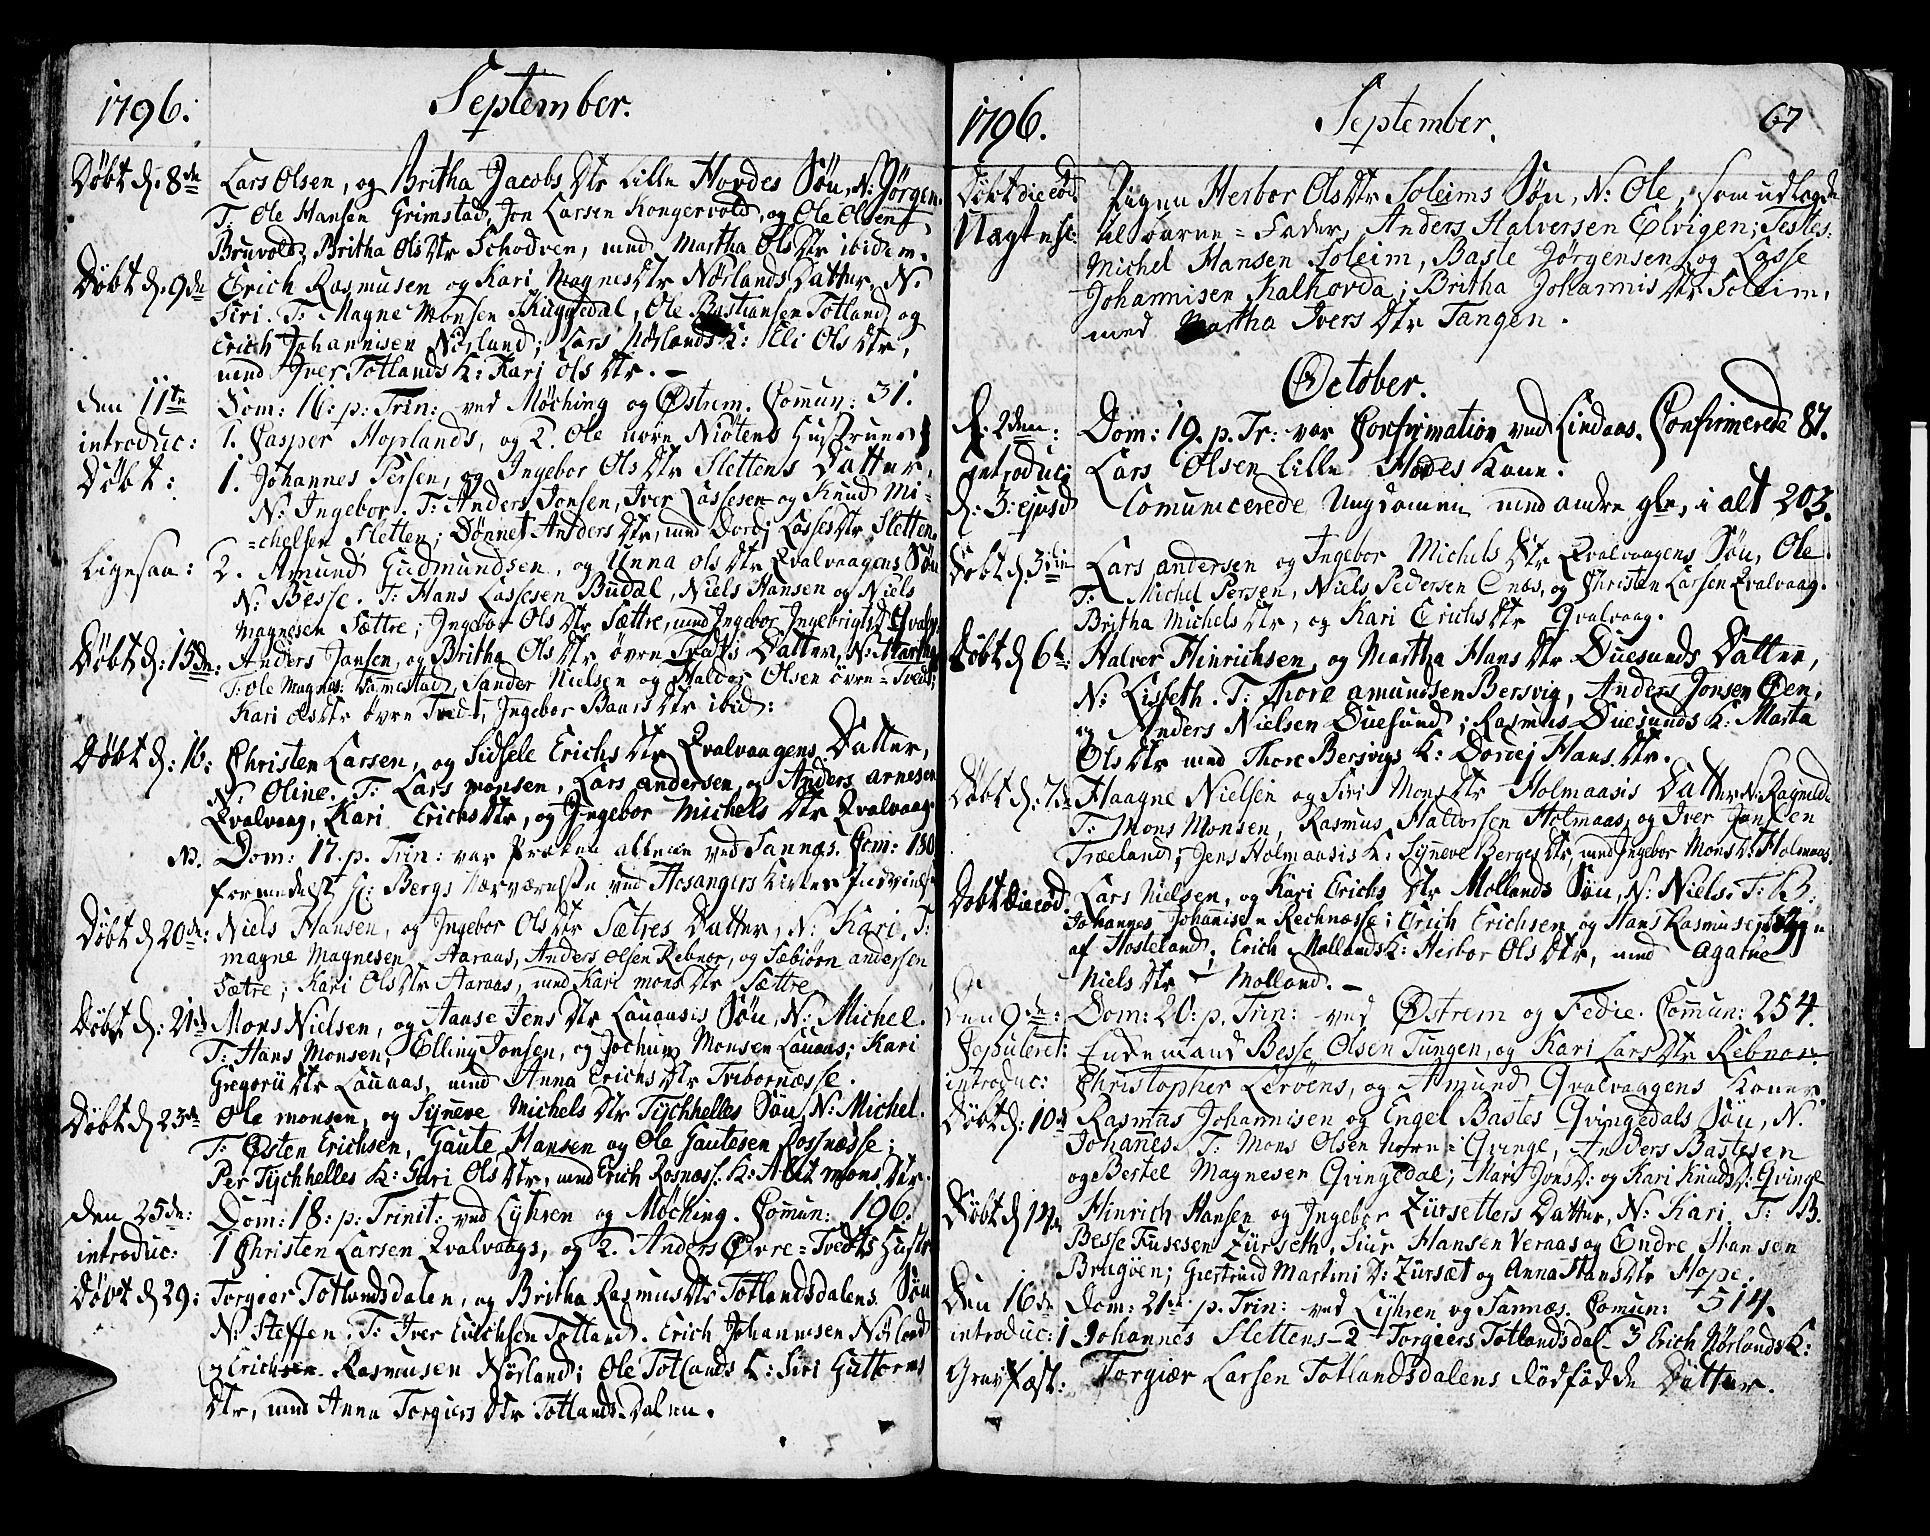 1796. September.
Døbt d. 8de Lars Olsen, og Britha Jacobs Dtr Lille Hordes Søn, N: Jørgen.
T: Ole Hansen Grimstad, Jon Larsen Kongervold, og Ole Olsen
Bruvold; Britha Ols Dtr Schodven, med Martha Ols Dtr ibidem.
Døbt d. 9de Erich Rasmusen og Kari Magnes Dtr Nørlands Datter, N:
Siri. T: Magne Monsen Skuggedal, Ole Bastiansen Totland, og
Erich Johannisen Nørland; Lars Nørlands K: Eli Ols Dtr,
med Iver Totlands K: Kari Ols Dtr. -
den 11te Dom: 16: p: Trin: ved Møching og Østrem. Comun: 31.
introduc: 1. Casper Hoplands, og 2. Ole nore Niøtens Hustruer
Døbt: 1. Johannes Persen, og Ingebor Ols Dtr Slettens Datter,
N: Ingebor. T: Anders Jonsen, Iver Lassesen og Knud Mi=
=chelsen Sletten; Dønnet Anders Dtr, med Dordj Lasses Dtr Sletten.
Ligesaa: 2. Amund Gudmundsen, og Unna Ols Dtr Qvalvaagens Søn
N: Besse. T: Hans Lassesen Budal, Niels Hansen og Niels
Magnesen Sættre; Ingebor Ols Dtr Sættre, med Ingebor Ingebrigts D: Qvalv:
Døbt d: 15de: Anders Jansen, og Britha Ols Dtr øvre Tvets Datter, N: Martha
T: Ole Magnes: Dømestad, Sander Nielsen og Haldor Olsen øvre=Tvedt;
Kari Ols Dtr øvre Tvedt, Ingebor Baars Dtr ibid:
Døbt d: 16: Christen Larsen, og Sidsele Erichs Dtr Qvalvaagens Datter,
N: Oline. T: Lars Monsen, Lars Andersen, og Anders Arnesen
Qvalvaag, Kari Erichs Dtr, og Ingebor Michels Dtr Qvalvaag
No. Dom: 17. p. Trin: var Præken allene ved Sannæs. Com: 180
formedelst H: Bergs Nærværelse ved Hosangers Kirkes Indvielse
Døbt d 20de: Niels Hansen, og Ingebor Ols Dtr Sætres Datter, N: Kari. T:
Magne Magnesen Aaraas, Anders Olsen Rebnor, og Sæbiørn Andersen
Sætre; Kari Ols Dtr Aaraas, med Kari Mons Dtr Sættre
Døbt d: 21de Mons Nielsen, og Aase Jens Dtr Lauaasis Søn, N: Michel.
T: Hans Monsen, Elling Jonsen, og Jochum Monsen Lauaas; Kari
Gregorii Dtr Lauaas, med Anna Erichs Dtr Tvibornæsse.
Døbt d 23de Ole Monsen, og Synneve Michels Dtr Tychhelles Søn, N: Michel.
T: Østen Erichsen, Gaute Hansen og Ole Gautesen Rosnæsse;
Per Tychhelles K: Guri Ols Dtr, med Erich Rosnæss: K: Alit Mons Dtr.
den 25de: Dom: 18: p: Trinit: ved Lyhren og Møching. Comun: 196.
introduc: 1 Christen Larsen Qvalvaags, og 2. Anders Øvre=Tvedts Hustr:
Døbt d 29: Torgier Totlandsdalen, og Britha Rasmus Dtr Totlandsdalens Søn
N: Steffen. T: Iver Erichsen Totland. Erich Johannesen Nørland
og Erichsen Rasmusen Nørland; Ole Totlands K: Siri Guttorms
Dtr, med Anna Torgiers Dtr Totlands=Dalen.
1796. September. 67
Døbt die eod. Pigen Herbor Ols Dtr Soleims Søn, N: Ole, som udlagde
til Barne=Fader, Anders Halversen Elvigen; Testes:
Michel Hansen Soleim, Baste Jørgensen, og Lasse
Johannisen Kalhovda; Britha Johannis Dtr Soleim,
med Martha Ivers Dtr Tangen.
October.
d. 2den: Dom: 19. p. Tr: var Confirmation ved Lindaas. Confirmerede 87.
introduc: Lars Olsen lille Hodes Kone.
d: 3: ejusd Comunicerede Ungdomen med andre gle, i alt 203.
Døbt d. 3die Lars Andersen og Ingebor Michels Dtr Qvalvaagens Søn, Ole.
T: Michel Persen, Niels Pedersen Enæs, og Christen Larsen Qvalvaag.
Britha Michels Dtr, og Kari Erichs Dtr Qvalvaag.
Døbt d 6te: Halver Hinrichsen, og Martha Hans Dtr Duesunds Datter,
N: Lisbeth. T: Thore Amundsen Bersvig, Anders Jonsen Øen,
og Anders Nielsen Duesund; Rasmus Duesunds K: Marta
Ols Dtr med Thore Bersvigs K: Dortej Hans Dtr.
Døbt d. 7de Haagne Nielsen og Siri Mons Dtr Holmaasis Datter N: Ragnilde
T: Mons Monsen, Rasmus Haldorsen Holmaas, og Iver Jansen
Træeland; Jens Holmaasis K: Synneve Berges Dtr, med Ingebor Mons D: Holmaas.
Døbt die eod Lars Nielsen, og Kari Erichs Dtr Mollands Søn, N: Niels. T: B:
Johannes Johanisen Rechnæsse; Erich Erichsen og Hans Rasmusen
af Hosteland; Erich Mollands K: Herbor Ols Dtr, med Agathe
Niels Dtr Molland. -
den 9de: Dom: 20: p. Trin: ved Østrem og Fedie. Comun: 254.
Copuleret: Endemand Besse Olsen Tungen, og Kari Lars Dtr Rebnor.
introduc: Christopher Lerøens, og Amund Qvalvaagens Koner
Døbt d: 10de Rasmus Johannisen og Engel Bastes Qvingedals Søn, N.
Johanes. T: Mons Olsen Norn=Qvinge, Anders Bastesen
og Bertel Magnesen Qvingedal; Mari Jons D: og Kari Knuds D: Qvinge
Døbt d 14de Hinrich Hansen og Ingebor Zürsetters Datter, N: Kari. T: B.
Besse Fusesen Zürseth, Siur Hansen Veraas og Endre Hansen
Brugøen; Giertrud Martini D: Zürsæt og Anna Hans Dtr Hope.
Den 16de Dom: 21de p. Trin: ved Lyhren og Sannæs. Comun: 514.
introduc: 1 Johannes Slettens - 2 Torgiers Totlandsdal - 3 Erich Nørlands K:
Gravfæst: Torgiær Larsen Totlandsdalens dødfødde Datter.